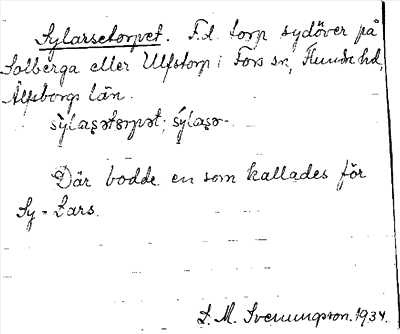 Sylarsetorpet. F.d. torp sydöver på
Solberga eller Ulfstorp i Fors sn, Flundre hd,
Älvsborgs län.
sýlaşətɵrpət; sýlaşə-.
Där bodde en som kallades för
Sy-Lars.
D. M. Svenungsson. 1934.